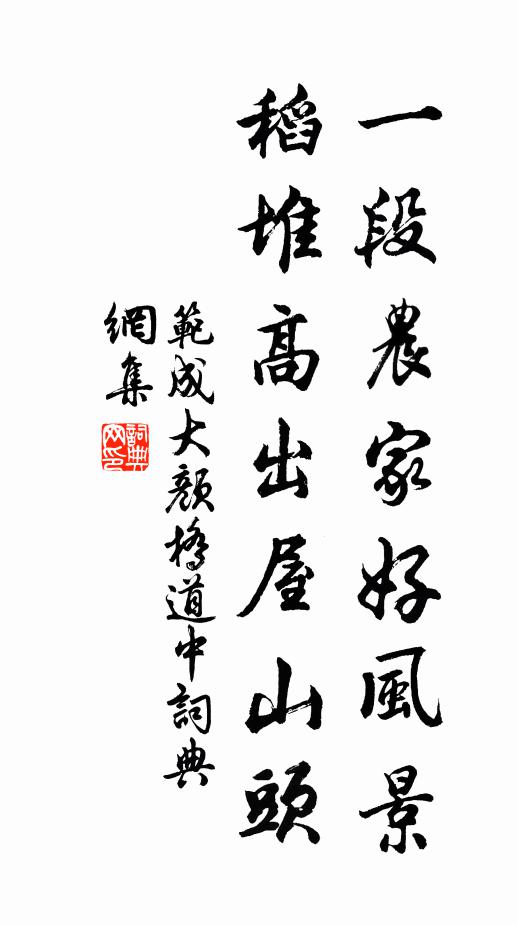 一段農家好風景
稻堆高出屋山頭
範成大顏橋道中詞典
網集
詞典
网印